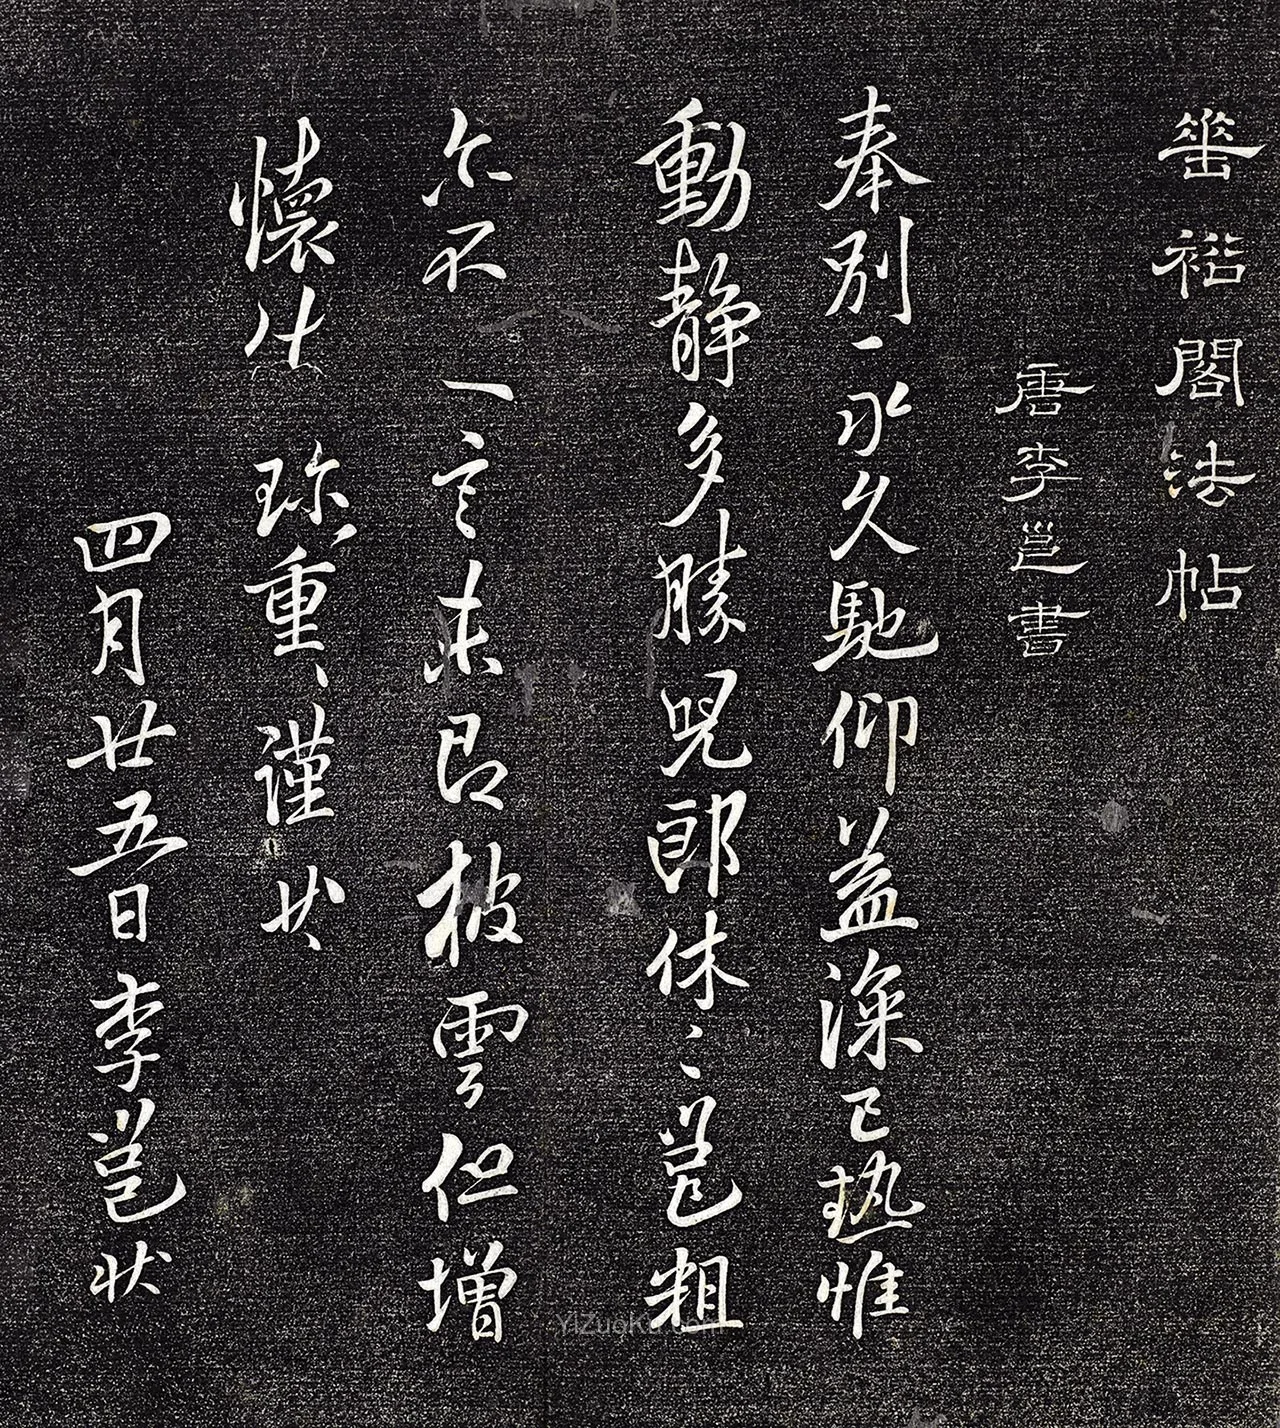 垂裕閣法帖
唐李邕書
奉別一永久馳仰益深已热惟
動靜多勝咒郎休〻邕粗
尓不一言未即披雲但增
懷 珍重、謹
四月廿五日李邕狀
YiZuoKu.com